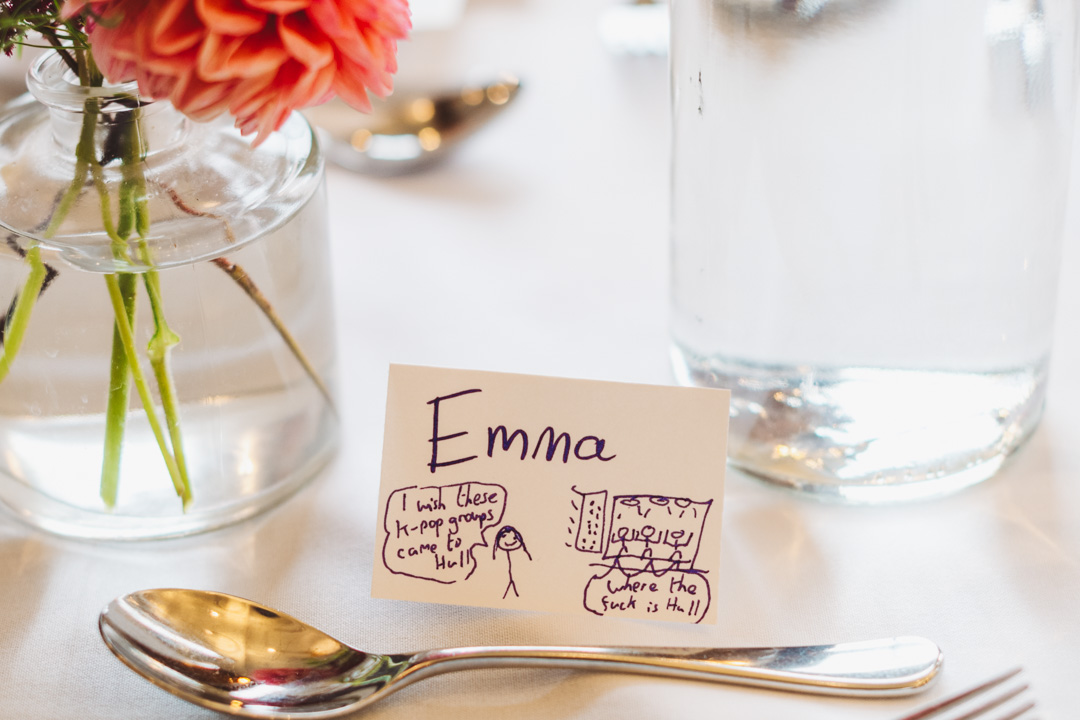 Emma
I wish these
K-pop groups
came to
Hull
Where the
fuck is Hull